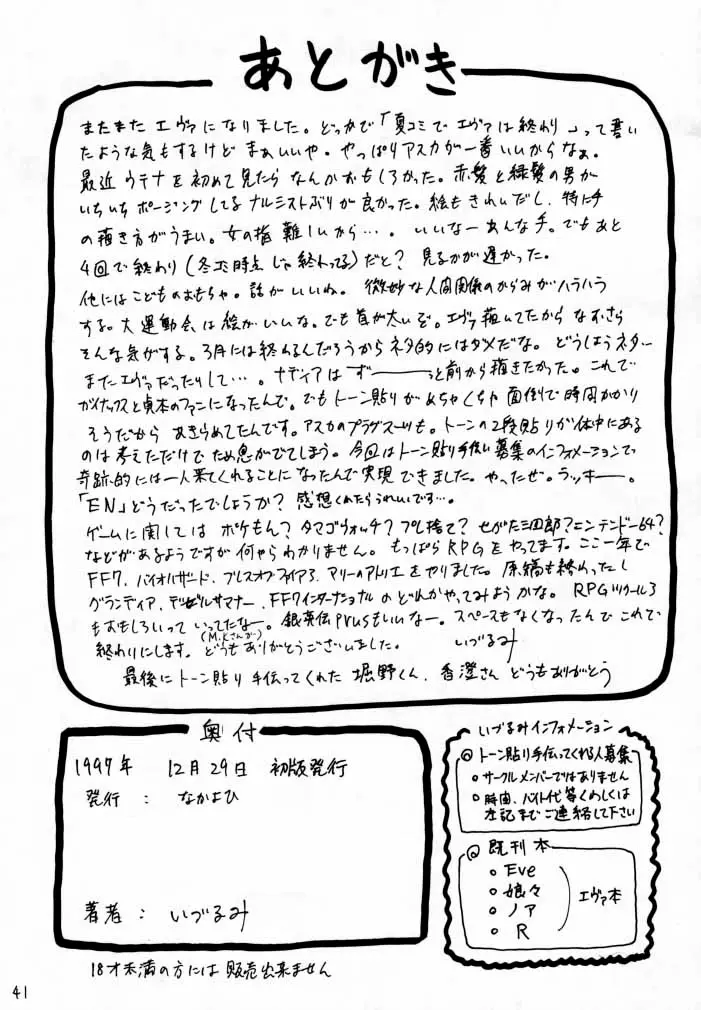 あとがき
またまた エヴァになりました。どっかで「夏コミで エヴァは終わり」って書い
たような気もするけど まぁいいや。やっぱりアスカが一番いいからなぁ。
最近 ウテナを初めて見たら なんかおもしろかった。赤髪と緑髪の男が
いちいち ポージングしてる ナルシストぶりが良かった。絵もきれいだし、特に手
の描き方がうまい。女の指 難しいから…。いいなーあんな手。でもあと
4回で終わり(冬コミ時点じゃ終わってる)だと? 見るのが遅かった。
他にはこどものおもちゃ。話がいいね。 微妙な人間関係のからみがハラハラ
する。大運動会は絵がいいな。でも首が太いぞ。エヴァ描いてたからなおさら
そんな気がする。3月には終わるんだろうからネタ的にはダメだな。どうしようネタ…
またエヴァだったりして…。ナディアは ずーーーっと前から描きたかった。これで
ガイナックスと貞本のファンになったんで。でもトーン貼りがめちゃくちゃ 面倒で時間かかり
そうだから あきらめてたんです。アスカのプラグスーツも。トーンの2段貼りが体中にある
のは考えただけでため息がでてしまう。今回はトーン貼り手伝い募集のインフォメーションで
奇跡的には一人来てくれることになったんで実現できました。やったぜ。ラッキー。
「EN」どうだったでしょうか? 感想くれたらうれしいです…。
ゲームに関しては ポケもん? タマゴウォッチ? プレ捨て? せがた三四郎? ニンテンドー64?
などがあるようですが何やらわかりません。もっぱらRPGをやってます。ここ一年で
FF7、バイオハザード、ブレスオブファイア3、マリーのアトリエをやりました。原稿も終わったし
グランディア、デビルサマナー、FF7インターナショナルのどれかやってみようかな。RPGツクール3
もおもしろいっていってたなー。銀英伝plusもいいなー。スペースもなくなったんでこれで
(M.Kさんが)
終わりにします。どうもありがとうございました。 いづるみ
最後にトーン貼り手伝ってくれた 堀野くん、香澄さん どうもありがとう
奥付
1997年 12月29日 初版発行
発行 : なかよひ
著者 : いづるみ
18才未満の方には 販売出来ません
いづるみインフォメーション
◎トーン貼り手伝ってくれる人募集
○サークルメンバーではありません
○時間、バイト代等くわしくは
左記までご連絡して下さい
◎既刊本
○Eve
○娘々
○ノア
○R
エヴァ本
41